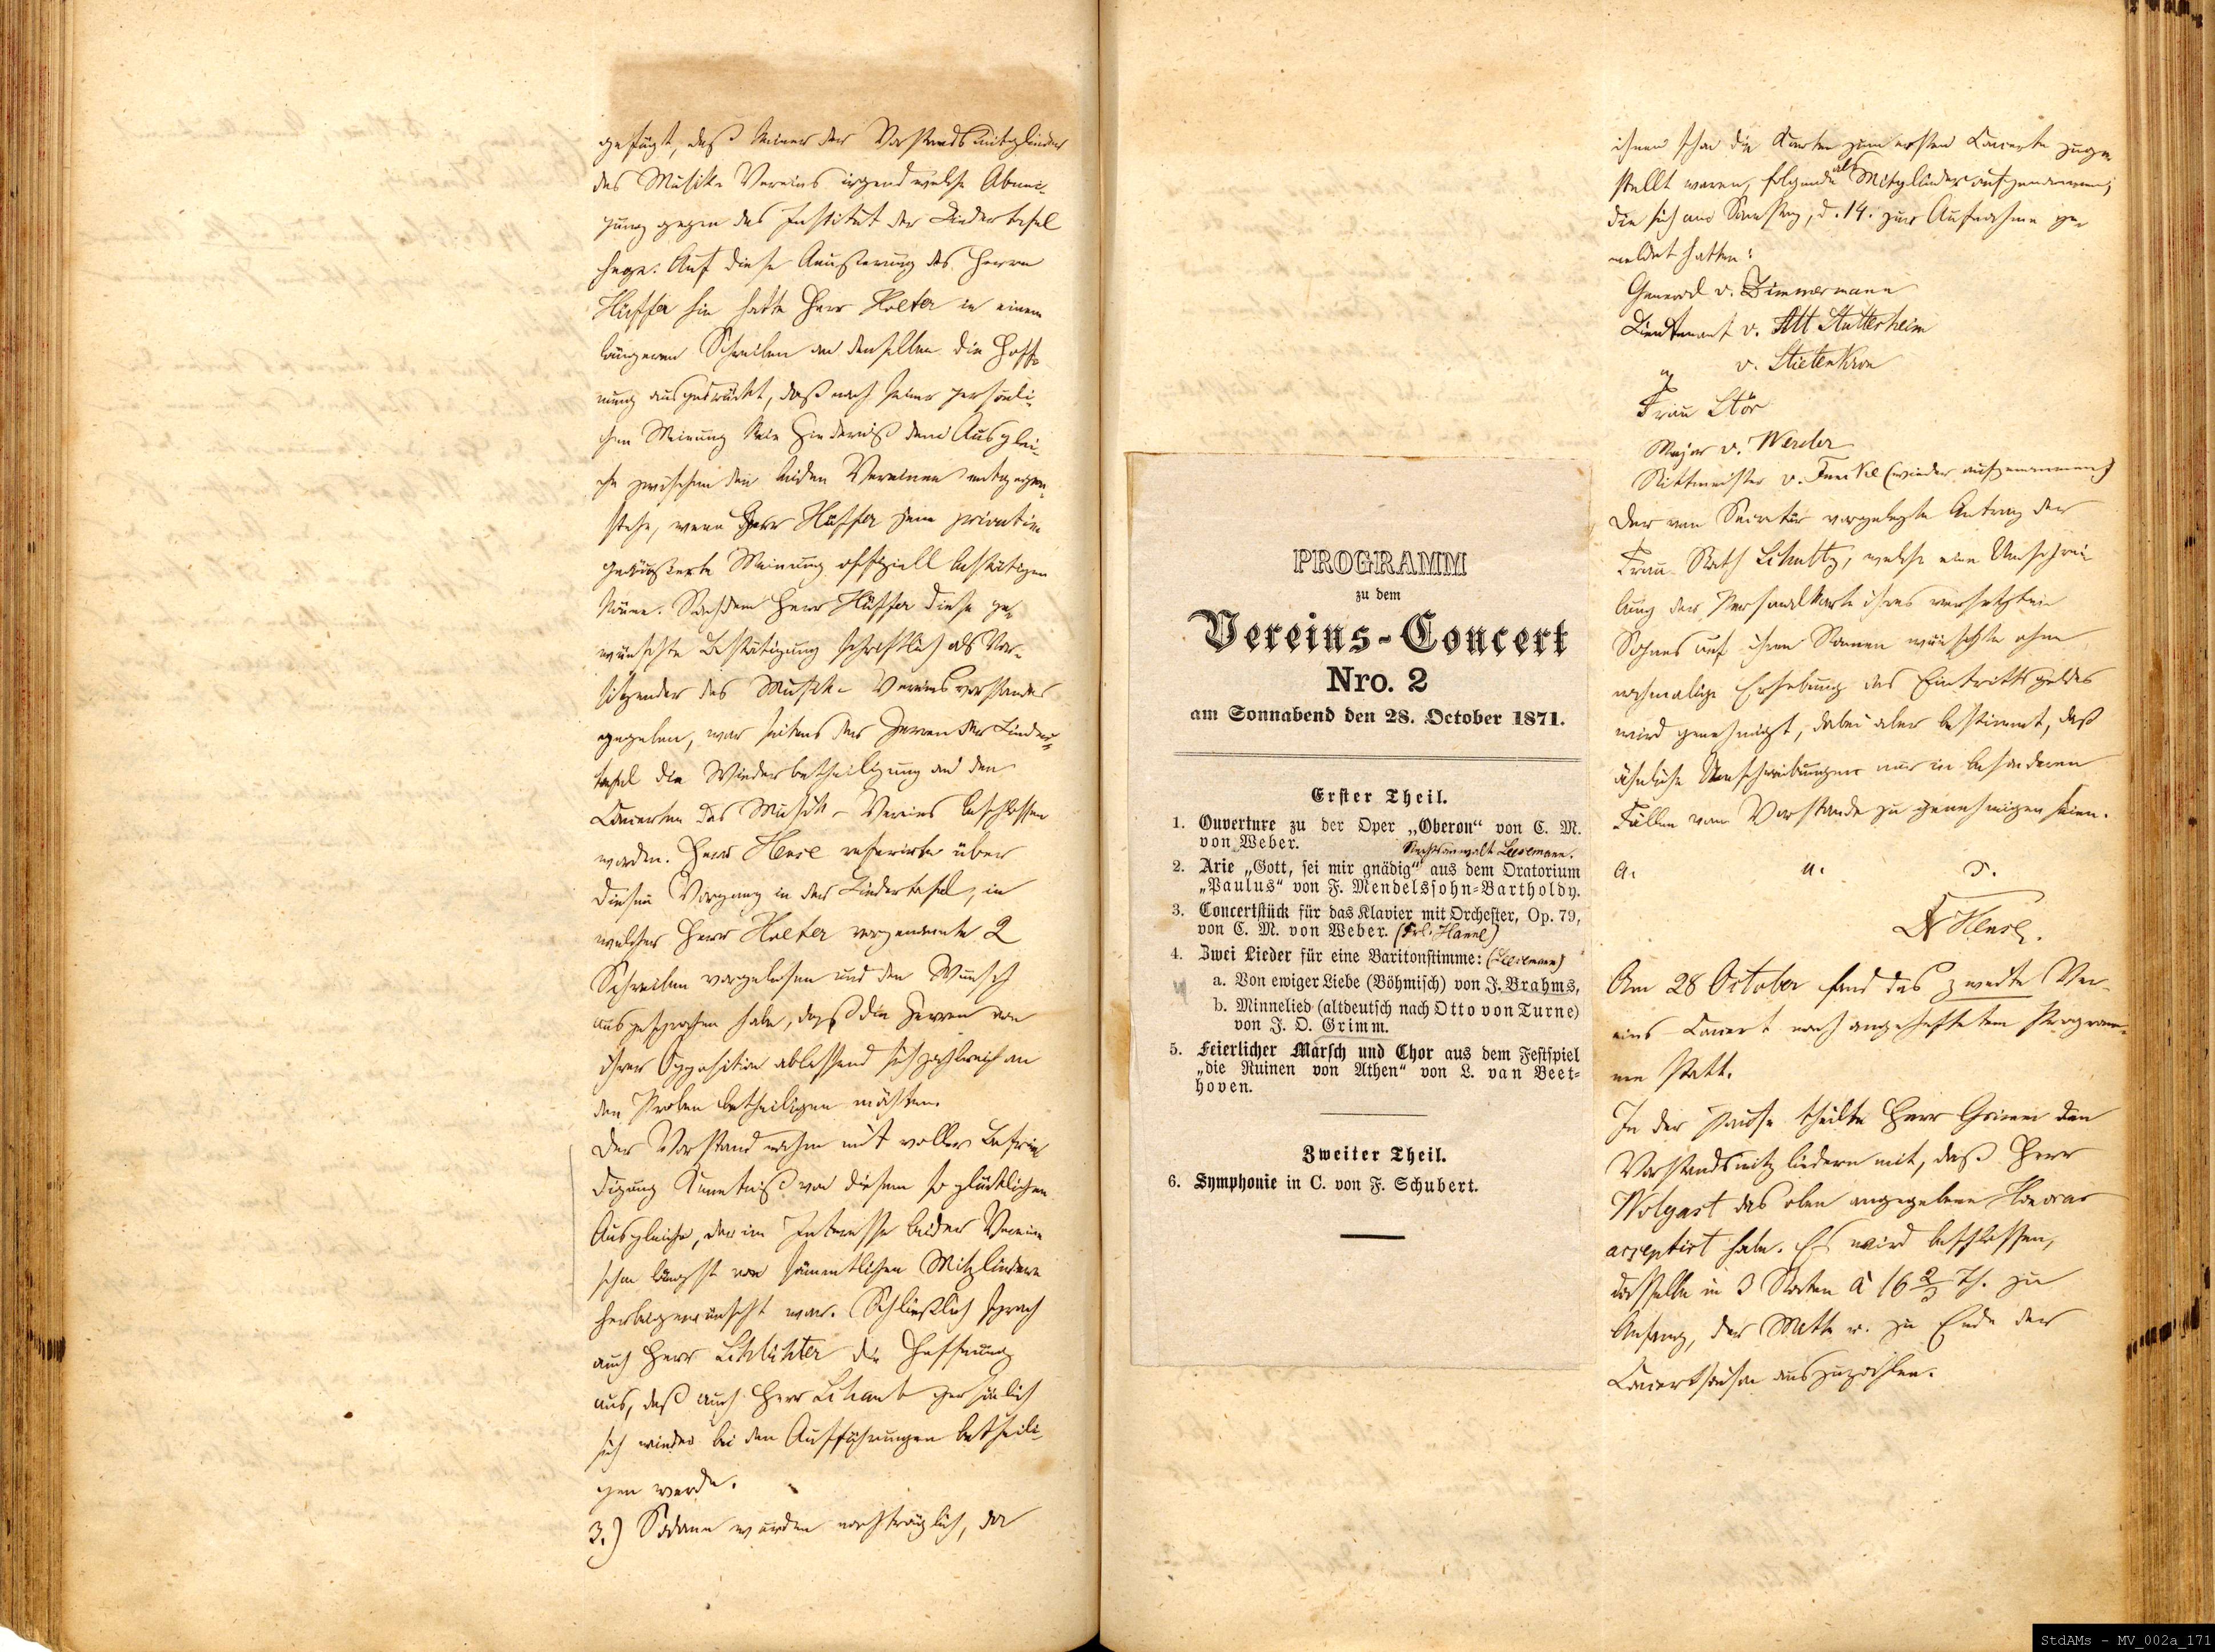 gefügt, daß keiner der Vorstandsmitglieder
des Musik-Vereins irgend welche Abnei-
gung gegen das Institut der Liedertafel
hege. Auf diese Aeußerung des Herrn
Hüffer hin hatte Herr Holter in einem
längeren Schreiben an denselben die Hoff-
nung ausgedrückt, daß nach seiner persönli-
chen Meinung kein Hinderniß dem Ausglei-
che zwischen den beiden Vereinen entgegen-
stehe, wenn Herr Hüffer seine privatim
geäußerte Meinung offiziell bestätigen
könne. Nachdem Herr Hüffer diese ge-
wünschte Bestätigung schriftlich als Vor-
sitzender des Musik-Vereinsvorstandes
gegeben, war seitens der Herren der Lieder-
tafel die Wiederbetheiligung an den
Concerten des Musik-Vereins beschlossen
worden. Herr Hense referirte über
diesen Vorgang in der Liedertafel, in
welcher Herr Holter vorgenannte 2
Schreiben vorgelesen und den Wunsch
ausgesprochen habe, daß die Herren von
ihrer Opposition ablassend sich zahlreich an
den Proben betheiligen möchten.
Der Vorstand nahm mit voller Befrie-
digung Kenntniß von diesem so glücklichen
Ausgleiche, der im Interesse beider Vereine
schon längst von sämmtlichen Mitgliedern
herbeigewünscht war. Schließlich sprach
auch Herr Schlichter die Hoffnung
aus, daß auch Herr Schaub persönlich
sich wieder bei den Aufführungen betheili-
gen werde.
3.) Sodann wurden nachträglich, da
PROGRAMM
zu dem
Vereins-Concert
Nro. 2
am Sonnabend den 28. October 1871.
Erster Theil.
1. Ouverture zu der Oper „Oberon“ von C. M.
von Weber.
Rechtsanwalt Leesemann.
2. Arie „Gott, sei mir gnädig“ aus dem Oratorium
„Paulus“ von F. Mendelssohn-Bartholdy.
3. Concertstück für das Klavier mit Orchester, Op. 79,
von C. M. von Weber. (Frl. Hanne)
4. Zwei Lieder für eine Baritonstimme: (Leesemann)
a. Von ewiger Liebe (Böhmisch) von J. Brahms,
b. Minnelied (altdeutsch nach Otto von Turne)
von J. O. Grimm.
5. Feierlicher Marsch und Chor aus dem Festspiel
„die Ruinen von Athen“ von L. van Beet-
hoven.
Zweiter Theil.
6. Symphonie in C. von F. Schubert.
ihnen schon die Karten zum ersten Concerte zuge-
stellt waren, folgende als Mitglieder aufgenommen,
die sich am Samstag, d. 14. zur Aufnahme ge-
meldet hatten:
General v. Zimmermann
Lieutenant v. Alt Stutterheim
" v. Stietenkron
Frau Stör
Major v. Werder
Rittmeister v. (wieder aufgenommen)
Der vom Secretär vorgelegte Antrag der
Frau Rath Schultz, welche eine Umschrei-
bung der Personalkarte ihres versetzten
Sohnes auf ihren Namen wünschte ohne
nochmalige Erhebung des Eintrittsgeldes
wird genehmigt, dabei aber bestimmt, daß
ähnliche Umschreibungen nur in besonderen
Fällen vom Vorstande zu genehmigen seien.
a. u. s.
Dr Hense.
Am 28 October fand das zweite Ver-
eins-Concert nach angeheftetem Program-
me statt.
In der Pause theilte Herr Grimm den
Vorstandsmitgliedern mit, daß Herr
Wolgast das oben angegebene Honorar
acceptirt habe. Es wird beschlossen,
dasselbe in 3 Raten à 16 2/3 Th. zu
Anfang, der Mitte u. zu Ende der
Concertsaison auszuzahlen.
StdAMs - MV_002a_171